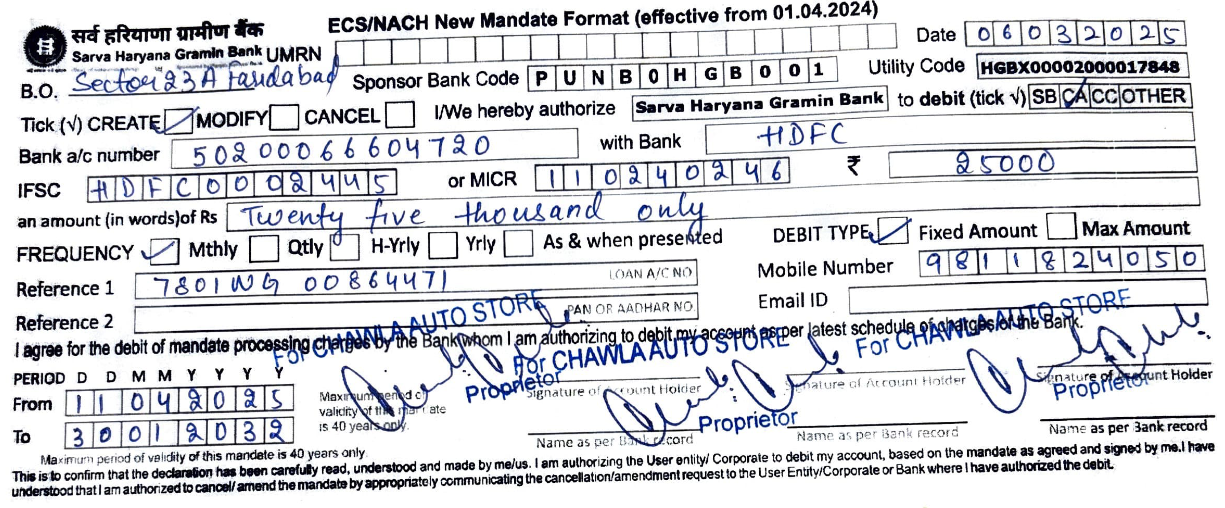 सर्व हरियाणा ग्रामीण बैंक
Sarva Haryana Gramin Bank
ECS/NACH New Mandate Format (effective from 01.04.2024)
UMRN
Date 06032025
B.O. Sector 23A Faridabad
Sponsor Bank Code PUNB0HGB001
Utility Code HGBX00002000017848
Tick (√) CREATE MODIFY CANCEL
I/We hereby authorize Sarva Haryana Gramin Bank to debit (tick √) SB CA CC OTHER
Bank a/c number 50200066604720 with Bank HDFC
IFSC HDFC0002445 or MICR 110240246 ₹ 25000
an amount (in words)of Rs Twenty five thousand only
FREQUENCY Mthly Qtly H-Yrly Yrly As & when presented DEBIT TYPE Fixed Amount Max Amount
Reference 1 7801NG 00864471 LOAN A/C NO Mobile Number 9811824050
Reference 2 PAN OR AADHAR NO. Email ID
I agree for the debit of mandate processing charges by the Bank whom I am authorizing to debit my account as per latest schedule of charges of the Bank.
For CHAWLA AUTO STORE
Proprietor
For CHAWLA AUTO STORE
Proprietor
For CHAWLA AUTO STORE
Proprietor
PERIOD D D M M Y Y Y Y
From 11042025
To 30012032
Maximum period of
validity of this mandate
is 40 years only.
Signature of Account Holder
Signature of Account Holder
Signature of Account Holder
Name as per Bank record
Name as per Bank record
Name as per Bank record
Maximum period of validity of this mandate is 40 years only.
This is to confirm that the declaration has been carefully read, understood and made by me/us. I am authorizing the User entity/ Corporate to debit my account, based on the mandate as agreed and signed by me.I have
understood that I am authorized to cancel/ amend the mandate by appropriately communicating the cancellation/amendment request to the User Entity/Corporate or Bank where I have authorized the debit.